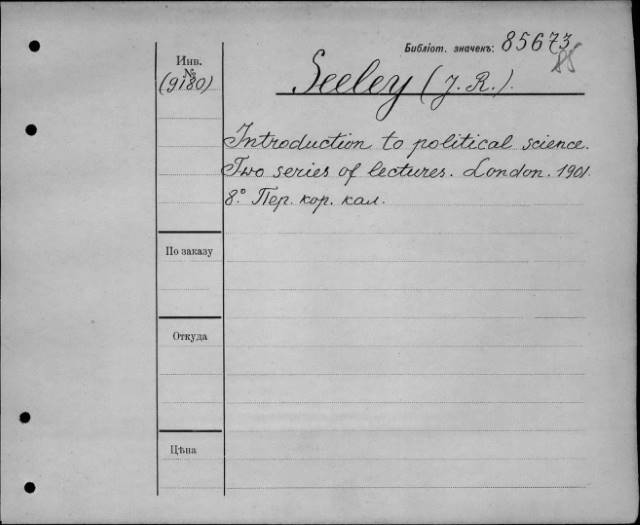 Библіот. значекъ: 85673
85
Инв.
№
(9180)
Seeley (J. R.).
Introduction to political science.
Two series of lectures. London. 1901.
8° Пер. кор. кал.
По заказу
Откуда
Цѣна